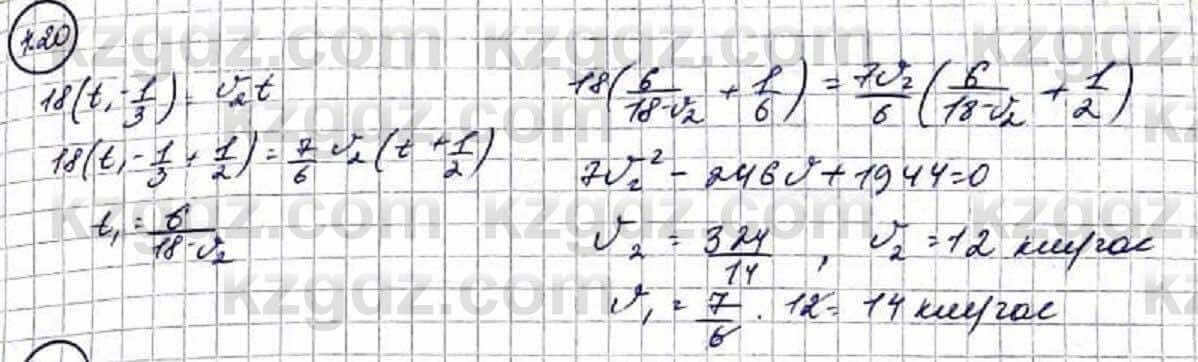 420
18(t₁ - 1/3) = v₂t
18(t₁ - 1/3 + 1/2) = 7/6 v₂(t + 1/2)
t₁ = 6/(18-v₂)
18(6/(18-v₂) + 1/6) = 7v₂/6 (6/(18-v₂) + 1/2)
7v₂² - 246v + 1944=0
v₂ = 324/14 , v₂ = 12 км/час
v₁ = 7/6 · 12 = 14 км/час
kzgdz.com kzgdz.com kzgdz.com
kzgdz.com kzgdz.com kzgdz.com
kzgdz.com kzgdz.com